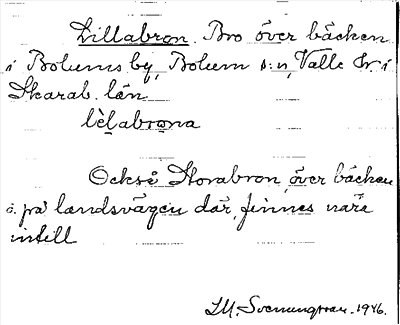 Lillabron. Bro över bäcken
i Bolums by, Bolum s:n, Valle hd i
Skarab. län
lèlabrωna
Också Storabron, över bäcken
å på landsvägen där, finnes nära
intill
1946.